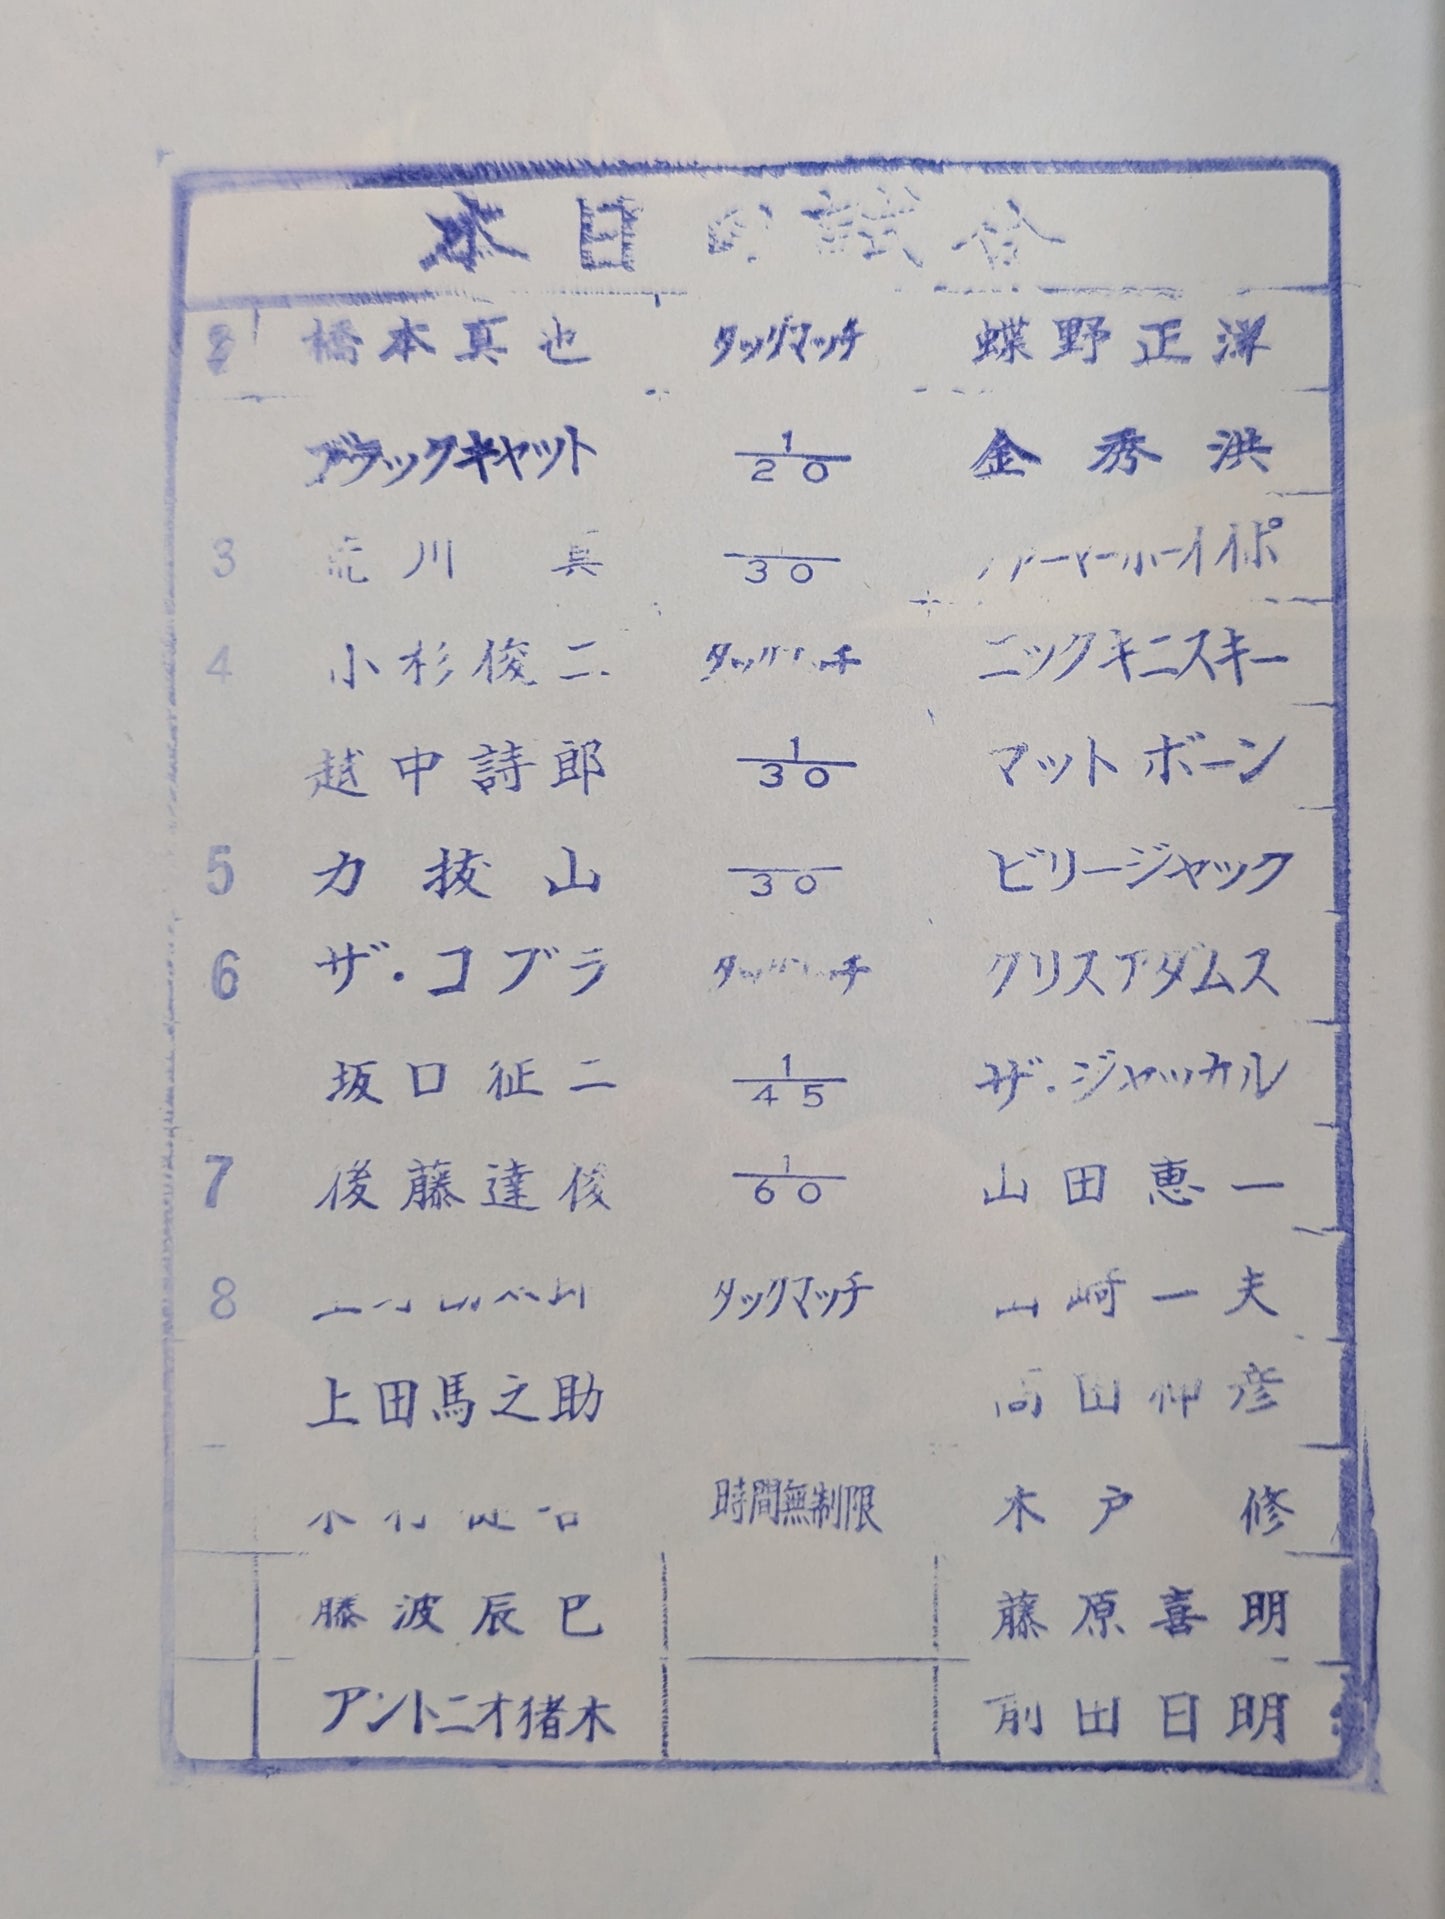 本日の試合
2 橋本真也 タッグマッチ 蝶野正洋
ブラックキャット 1/20 金秀洪
3 荒川真 30
4 小杉俊二 タッグマッチ ニックキニスキー
越中詩郎 1/30 マットボーン
5 力抜山 30 ビリージャック
6 ザ・コブラ タッグマッチ クリスアダムス
坂口征二 1/45 ザ・ジャッカル
7 後藤達俊 1/60 山田恵一
8 タッグマッチ 山崎一夫
上田馬之助 高田伸彦
時間無制限 木戸修
藤波辰巳 藤原喜明
アントニオ猪木 前田日明